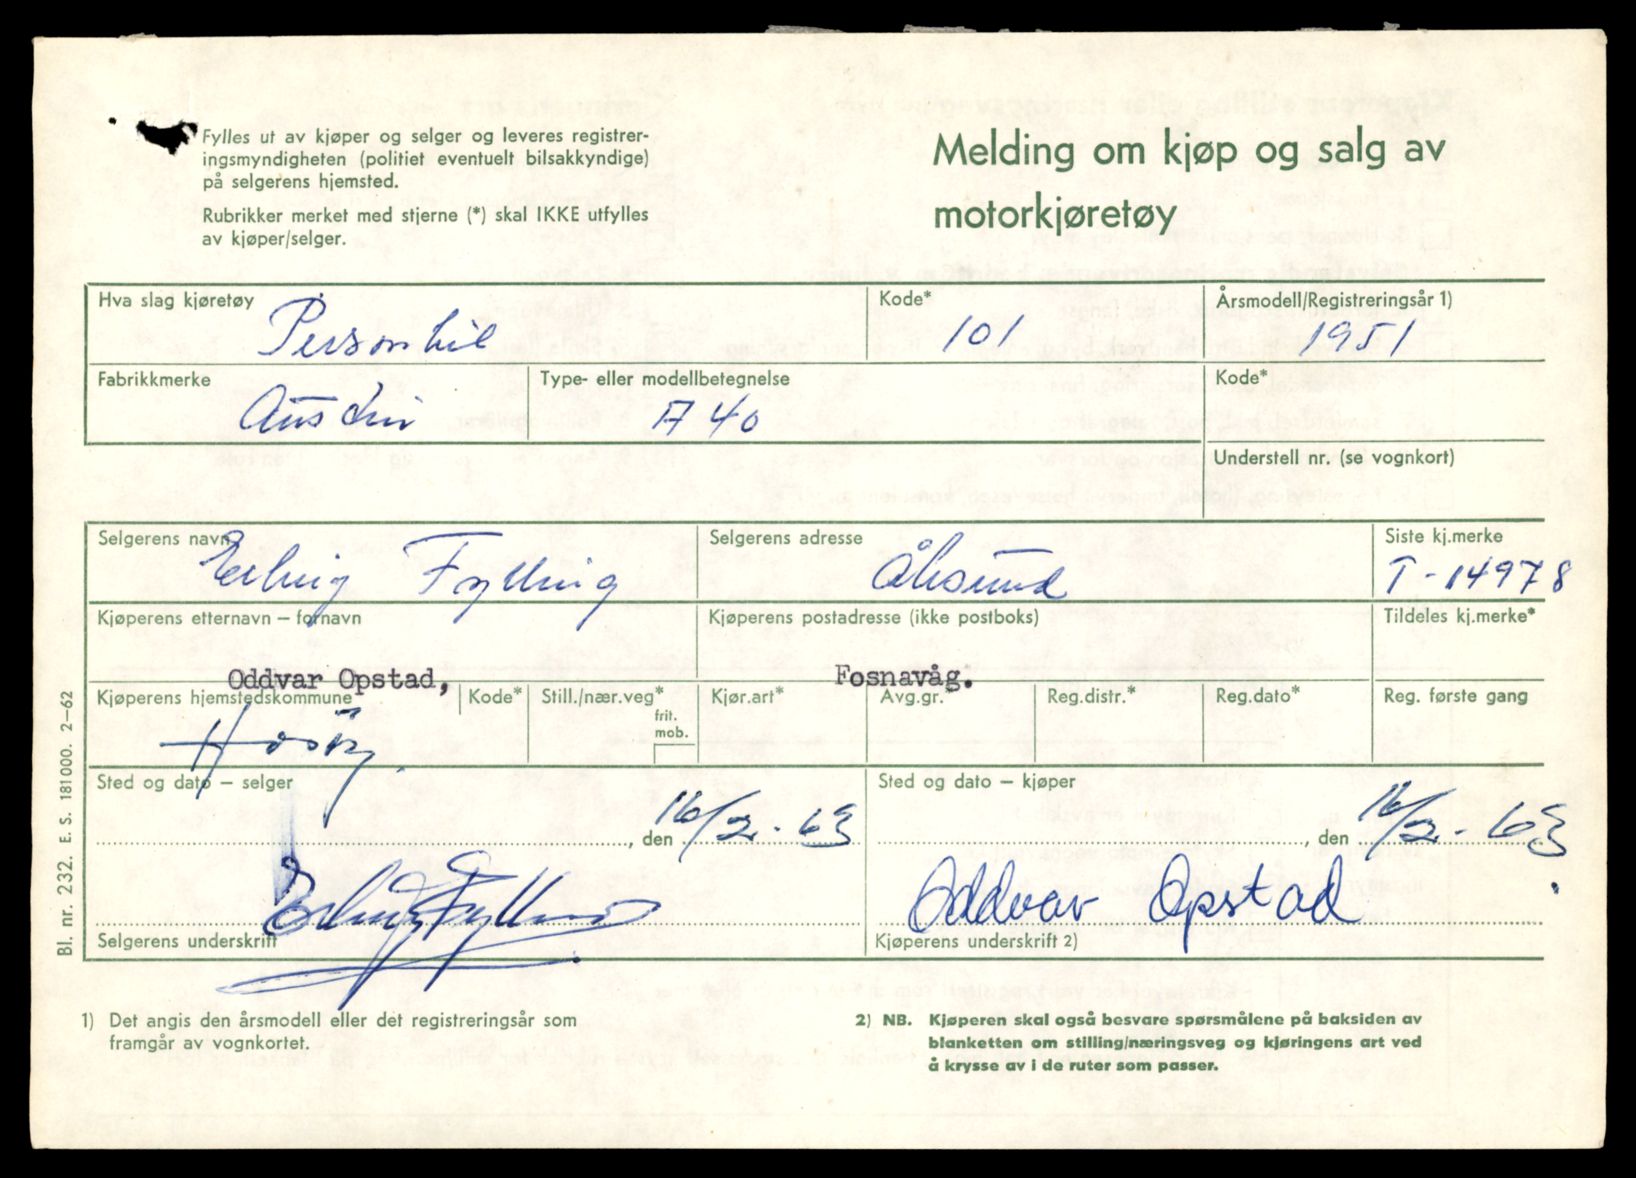 Fylles ut av kjøper og selger og leveres registrer-
ingsmyndigheten (politiet eventuelt bilsakkyndige)
på selgerens hjemsted.
Rubrikker merket med stjerne (*) skal IKKE utfylles
av kjøper/selger.
Melding om kjøp og salg av
motorkjøretøy
Hva slag kjøretøy
Personbil
Kode*
101
Årsmodell/Registreringsår 1)
1951
Fabrikkmerke
Austin
Type- eller modellbetegnelse
A 40
Kode*
Understell nr. (se vognkort)
Selgerens navn
Erling Fylling
Selgerens adresse
Ålesund
Siste kj.merke
T-14978
Kjøperens etternavn – fornavn
Oddvar Opstad,
Kjøperens postadresse (ikke postboks)
Fosnavåg.
Tildeles kj.merke*
Kjøperens hjemstedskommune
Kode*
Still./nær.veg*
frit.
mob.
Kjør.art*
Avg.gr.*
Reg.distr.*
Reg.dato*
Reg. første gang
Sted og dato – selger
, den 16/2. - 63
Sted og dato – kjøper
, den 16/2. - 63.
Erling Fylling
Selgerens underskrift
Oddvar Opstad
Kjøperens underskrift 2)
Bl. nr. 232. E. S. 181000. 2–62
1) Det angis den årsmodell eller det registreringsår som
framgår av vognkortet.
2) NB. Kjøperen skal også besvare spørsmålene på baksiden av
blanketten om stilling/næringsveg og kjøringens art ved
å krysse av i de ruter som passer.